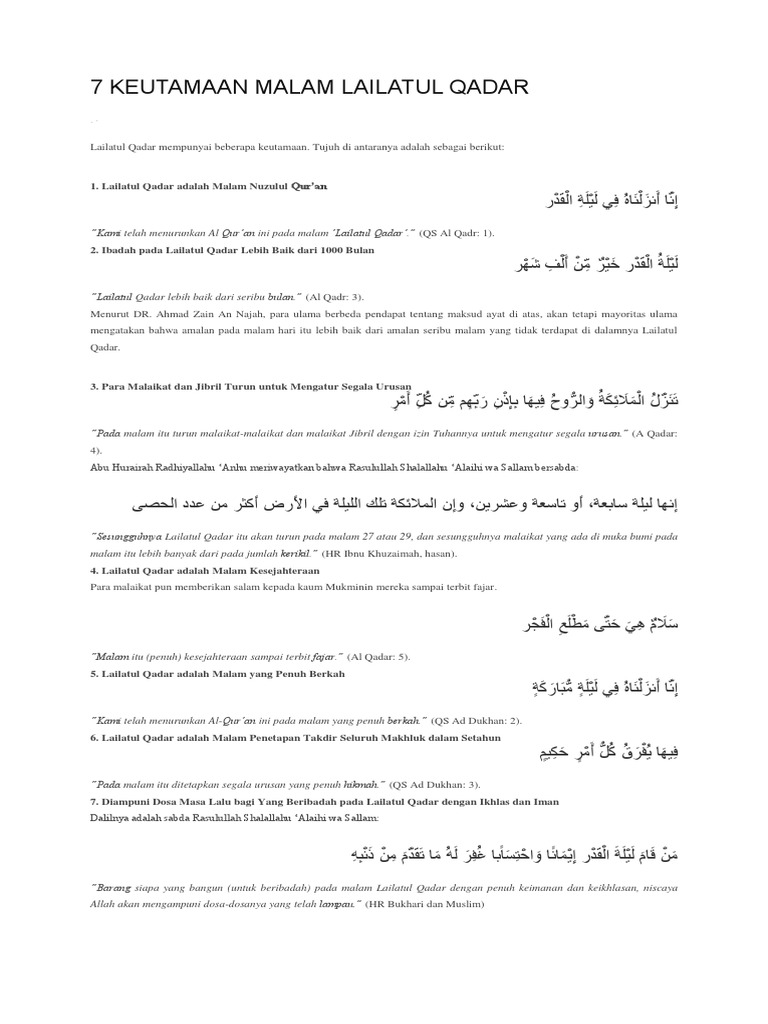 7 KEUTAMAAN MALAM LAILATUL QADAR
Lailatul Qadar mempunyai beberapa keutamaan. Tujuh di antaranya adalah sebagai berikut:
1. Lailatul Qadar adalah Malam Nuzulul Qur’an
إِنَّا أَنزَلْنَاهُ فِي لَيْلَةِ الْقَدْرِ
“Kami telah menurunkan Al Qur’an ini pada malam ‘Lailatul Qadar’.” (QS Al Qadr: 1).
2. Ibadah pada Lailatul Qadar Lebih Baik dari 1000 Bulan
لَيْلَةُ الْقَدْرِ خَيْرٌ مِّنْ أَلْفِ شَهْرٍ
“Lailatul Qadar lebih baik dari seribu bulan.” (Al Qadr: 3).
Menurut DR. Ahmad Zain An Najah, para ulama berbeda pendapat tentang maksud ayat di atas, akan tetapi mayoritas ulama
mengatakan bahwa amalan pada malam hari itu lebih baik dari amalan seribu malam yang tidak terdapat di dalamnya Lailatul
Qadar.
3. Para Malaikat dan Jibril Turun untuk Mengatur Segala Urusan
تَنَزَّلُ الْمَلَائِكَةُ وَالرُّوحُ فِيهَا بِإِذْنِ رَبِّهِم مِّن كُلِّ أَمْرٍ
“Pada malam itu turun malaikat-malaikat dan malaikat Jibril dengan izin Tuhannya untuk mengatur segala urusan.” (A Qadar:
4).
Abu Hurairah Radhiyallahu ‘Anhu meriwayatkan bahwa Rasulullah Shalallahu ‘Alaihi wa Sallam bersabda:
إنها ليلة سابعة، أو تاسعة وعشرين، وإن الملائكة تلك الليلة في الأرض أكثر من عدد الحصى
“Sesungguhnya Lailatul Qadar itu akan turun pada malam 27 atau 29, dan sesungguhnya malaikat yang ada di muka bumi pada
malam itu lebih banyak dari pada jumlah kerikil.” (HR Ibnu Khuzaimah, hasan).
4. Lailatul Qadar adalah Malam Kesejahteraan
Para malaikat pun memberikan salam kepada kaum Mukminin mereka sampai terbit fajar.
سَلَامٌ هِيَ حَتَّى مَطْلَعِ الْفَجْرِ
“Malam itu (penuh) kesejahteraan sampai terbit fajar.” (Al Qadar: 5).
5. Lailatul Qadar adalah Malam yang Penuh Berkah
إِنَّا أَنزَلْنَاهُ فِي لَيْلَةٍ مُّبَارَكَةٍ
“Kami telah menurunkan Al-Qur’an ini pada malam yang penuh berkah.” (QS Ad Dukhan: 2).
6. Lailatul Qadar adalah Malam Penetapan Takdir Seluruh Makhluk dalam Setahun
فِيهَا يُفْرَقُ كُلُّ أَمْرٍ حَكِيمٍ
“Pada malam itu ditetapkan segala urusan yang penuh hikmah.” (QS Ad Dukhan: 3).
7. Diampuni Dosa Masa Lalu bagi Yang Beribadah pada Lailatul Qadar dengan Ikhlas dan Iman
Dalilnya adalah sabda Rasulullah Shalallahu ‘Alaihi wa Sallam:
مَنْ قَامَ لَيْلَةَ الْقَدْرِ إِيْمَانًا وَاحْتِسَابًا غُفِرَ لَهُ مَا تَقَدَّمَ مِنْ ذَنْبِهِ
“Barang siapa yang bangun (untuk beribadah) pada malam Lailatul Qadar dengan penuh keimanan dan keikhlasan, niscaya
Allah akan mengampuni dosa-dosanya yang telah lampau.” (HR Bukhari dan Muslim)